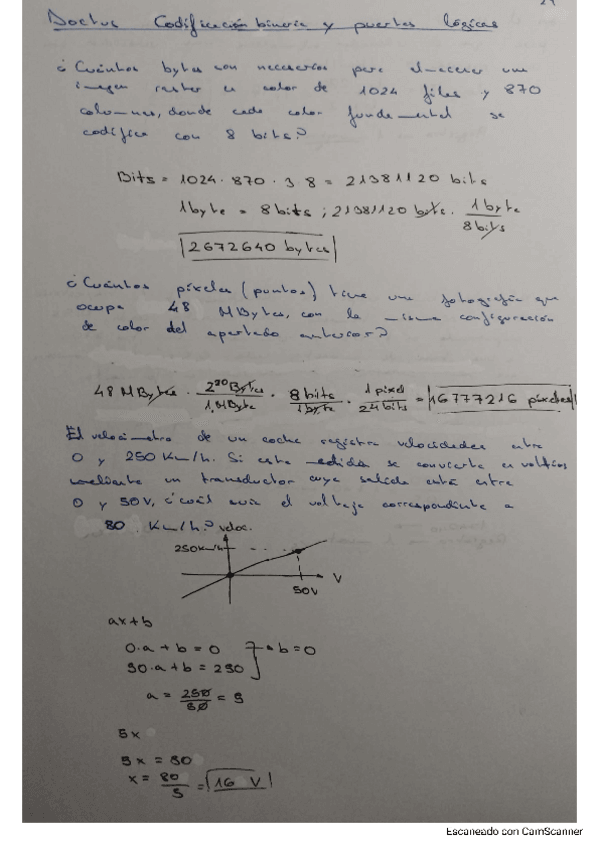 Doctus Codificación binaria y puertas lógicas
¿Cuántos bytes son necesarios para almacenar una
imagen raster en color de 1024 filas y 870
columnas, donde cada color fundamental se
codifica con 8 bits?
Bits = 1024 · 870 · 3 · 8 = 21381120 bits
1 byte = 8 bits ; 21381120 bits · 1 byte / 8 bits
2672640 bytes
¿Cuántos píxeles (puntos) tiene una fotografía que
ocupa 48 MBytes, con la misma configuración
de color del apartado anterior?
48 MByte · 2^20 Bytes / 1 MByte · 8 bits / 1 byte · 1 píxel / 24 bits = 16777216 píxeles
El velocímetro de un coche registra velocidades entre
0 y 250 Km/h. Si esta medida se convierte en voltios
mediante un transductor cuya salida está entre
0 y 50V, ¿cuál sería el voltaje correspondiente a
80 Km/h?
veloc.
250Km/h
V
50V
ax+b
0·a + b = 0
b = 0
50·a + b = 250
a = 250 / 50 = 5
5x
5x = 80
x = 80 / 5 = 16 V
Escaneado con CamScanner